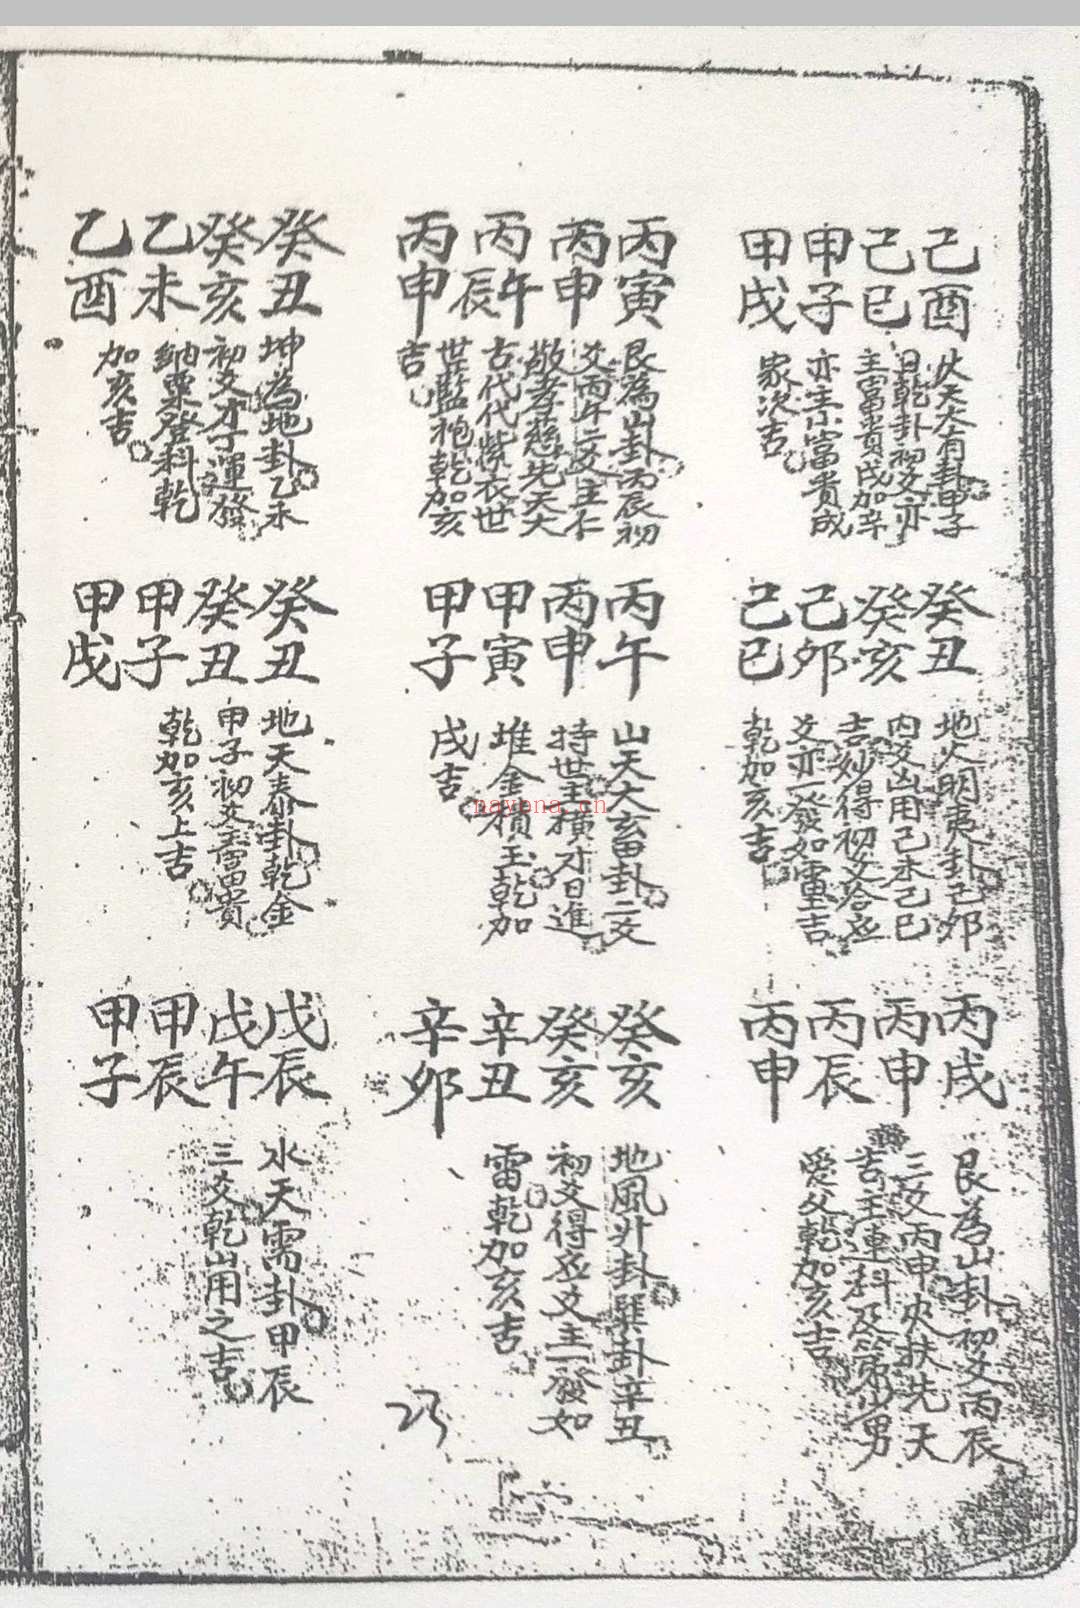 己酉
己巳
甲子
甲戌
火天大有卦甲子
日乾卦初爻亦
主富貴戌加辛
亦主小富貴戌
亥次吉
癸丑
癸亥
己卯
己巳
地火明夷卦己卯
内爻凶用己未己巳
吉妙得初爻合丞
爻亦一發如雷吉
乾加亥吉
丙戌
丙申
丙辰
丙申
艮為山卦初爻丙辰
三爻丙申央扶先天
吉主連科及第少男
愛父乾加亥吉
丙寅
丙申
丙午
丙辰
丙申
艮為山卦丙辰初
爻丙午二爻主仁
敬孝慈先天大
古代代紫衣世
世藍袍乾加亥
吉
丙午
丙申
甲寅
甲子
山天大畜卦二爻
持世主橫才日進
堆金積玉乾加
戌吉
癸亥
癸亥
辛丑
辛卯
地風升卦巽卦辛丑
初爻得丞爻主一發如
雷乾加亥吉
癸丑
癸亥
乙未
乙酉
坤為地卦乙未
初爻才丁運發
納粟登科乾
加亥吉
癸丑
癸丑
甲子
甲戌
地天泰卦乾金
甲子初爻壽富貴
乾加亥上吉
戊辰
戊午
甲辰
甲子
水天需卦甲辰
三爻乾山用之吉
23
nayona.cn